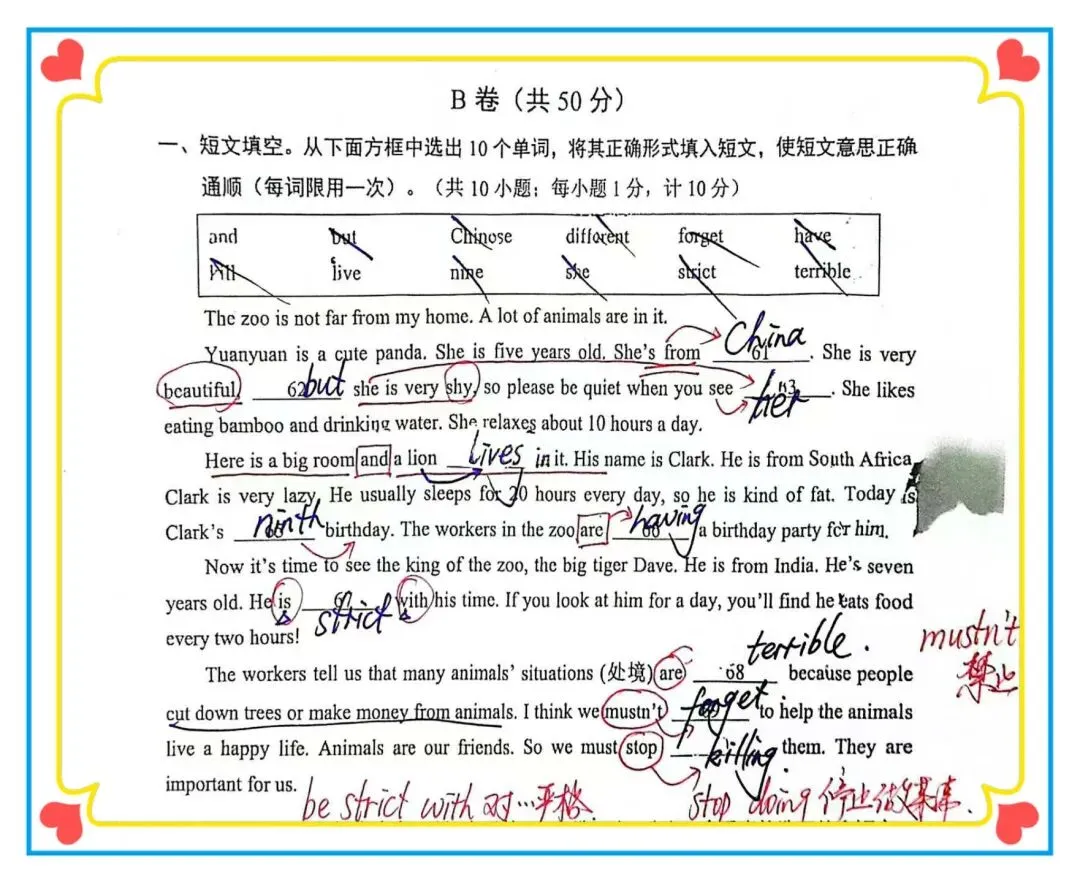 B 卷（共 50 分）
一、短文填空。从下面方框中选出 10 个单词，将其正确形式填入短文，使短文意思正确
通顺（每词限用一次）。（共 10 小题；每小题 1 分，计 10 分）
and but Chinese different forget have
kill live nine she strict terrible
The zoo is not far from my home. A lot of animals are in it.
Yuanyuan is a cute panda. She is five years old. She's from 61 China . She is very
beautiful, 62 but she is very shy, so please be quiet when you see 63 her . She likes
eating bamboo and drinking water. She relaxes about 10 hours a day.
Here is a big room and a lion lives in it. His name is Clark. He is from South Africa.
Clark is very lazy. He usually sleeps for 20 hours every day, so he is kind of fat. Today is
Clark's 65 ninth birthday. The workers in the zoo are 66 having a birthday party for him.
Now it's time to see the king of the zoo, the big tiger Dave. He is from India. He's seven
years old. He is 67 strict with his time. If you look at him for a day, you'll find he eats food
every two hours!
The workers tell us that many animals' situations (处境) are 68 terrible. because people
mustn't
禁止
cut down trees or make money from animals. I think we mustn't forget to help the animals
live a happy life. Animals are our friends. So we must stop killing them. They are
important for us.
be strict with 对…严格 stop doing 停止做某事.